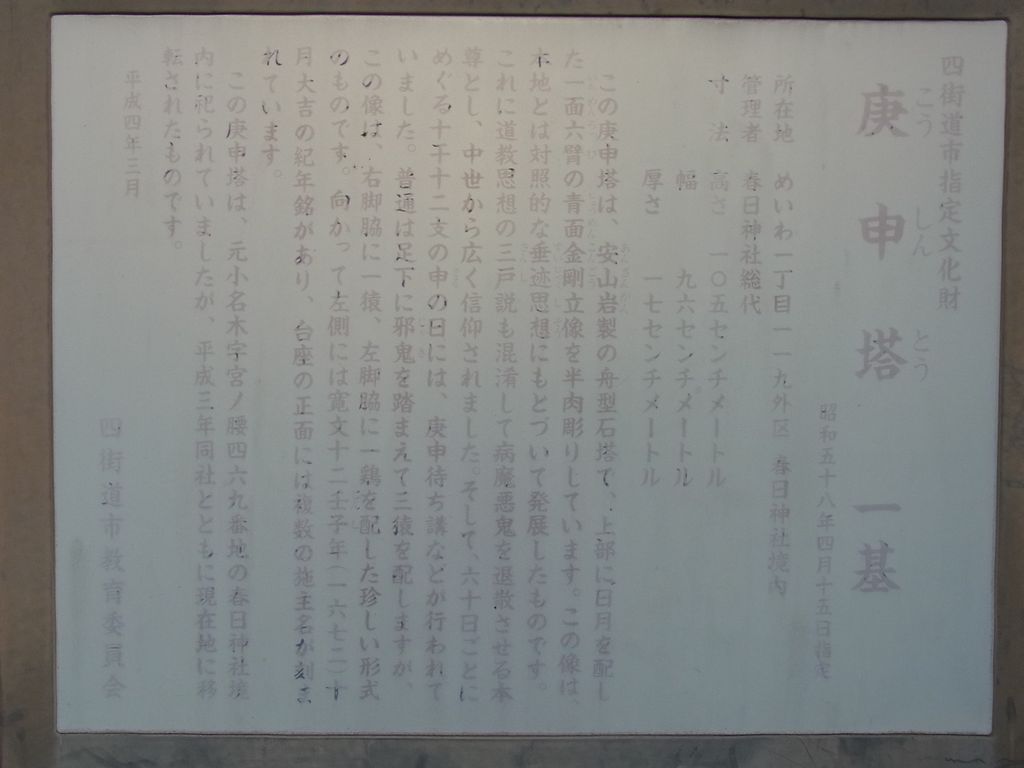 四街道市指定文化財
庚申塔 一基
こう しん とう
昭和五十八年四月十五日指定
所在地 めいわ一丁目一一九外区 春日神社境内
管理者 春日神社総代
寸 法 高さ 一〇五センチメートル
幅 九六センチメートル
厚さ 一七センチメートル
この庚申塔は、安山岩製の舟型石塔で、上部に日月を配し
た一面六臂の青面金剛立像を半肉彫りしています。この像は、
本地とは対照的な垂迹思想にもとづいて発展したものです。
これに道教思想の三戸説も混淆して病魔悪鬼を退散させる本
尊とし、中世から広く信仰されました。そして、六十日ごとに
めぐる十干十二支の申の日には、庚申待ち講などが行われて
いました。普通は足下に邪鬼を踏まえて三猿を配しますが、
この像は、右脚脇に一猿、左脚脇に一鶏を配した珍しい形式
のものです。向かって左側には寛文十二壬子年(一六七二)十
月大吉の紀年銘があり、台座の正面には複数の施主名が刻ま
れています。
この庚申塔は、元小名木字宮ノ腰四六九番地の春日神社境
内に祀られていましたが、平成三年同社とともに現在地に移
転されたものです。
平成四年三月
四街道市教育委員会